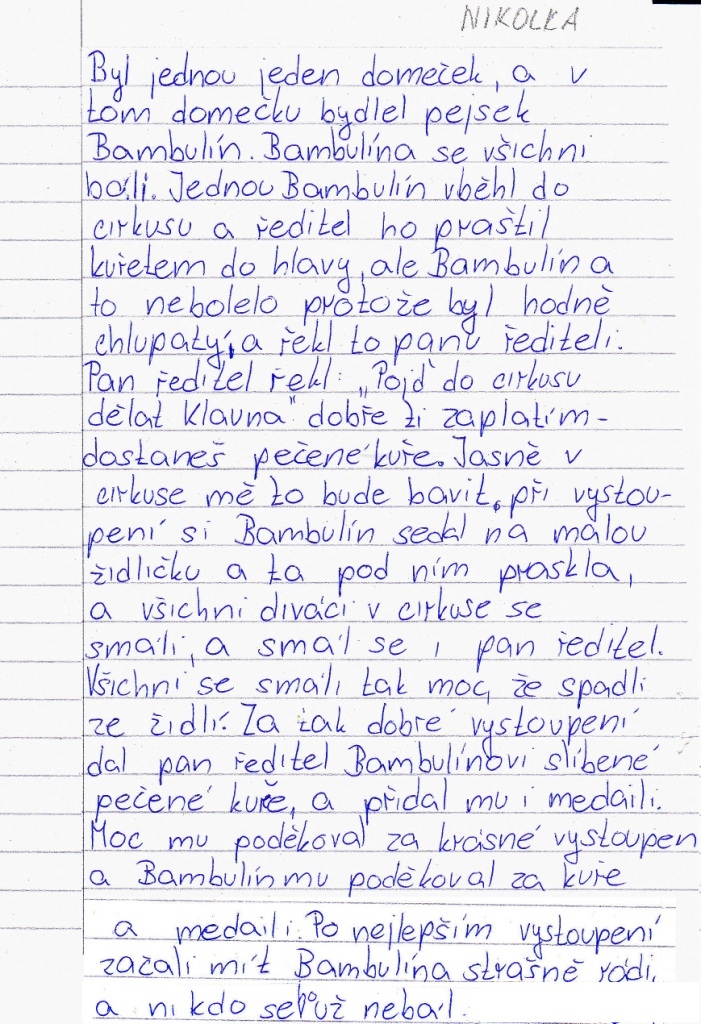 NIKOLKA
Byl jednou jeden domeček, a v
tom domečku bydlel pejsek
Bambulín. Bambulína se všichni
báli. Jednou Bambulín vběhl do
cirkusu a ředitel ho praštil
kuřetem do hlavy, ale Bambulín a
to nebolelo protože byl hodně
chlupatý, a řekl to panu řediteli.
Pan ředitel řekl: „Pojď do cirkusu
dělat klauna" dobře ti zaplatím-
dostaneš pečené kuře. Jasně v
cirkuse mě to bude bavit, při vystou-
pení si Bambulín sedal na malou
židličku a ta pod ním praskla,
a všichni diváci v cirkuse se
smáli, a smál se i pan ředitel.
Všichni se smáli tak moc, že spadli
ze židlí. Za tak dobré vystoupení
dal pan ředitel Bambulínovi slíbené
pečené kuře, a přidal mu i medaili.
Moc mu poděkoval za krásné vystoupen
a Bambulín mu poděkoval za kuře
a medaili. Po nejlepším vystoupení
začali mít Bambulína strašně rádi,
a nikdo se ho už nebál.